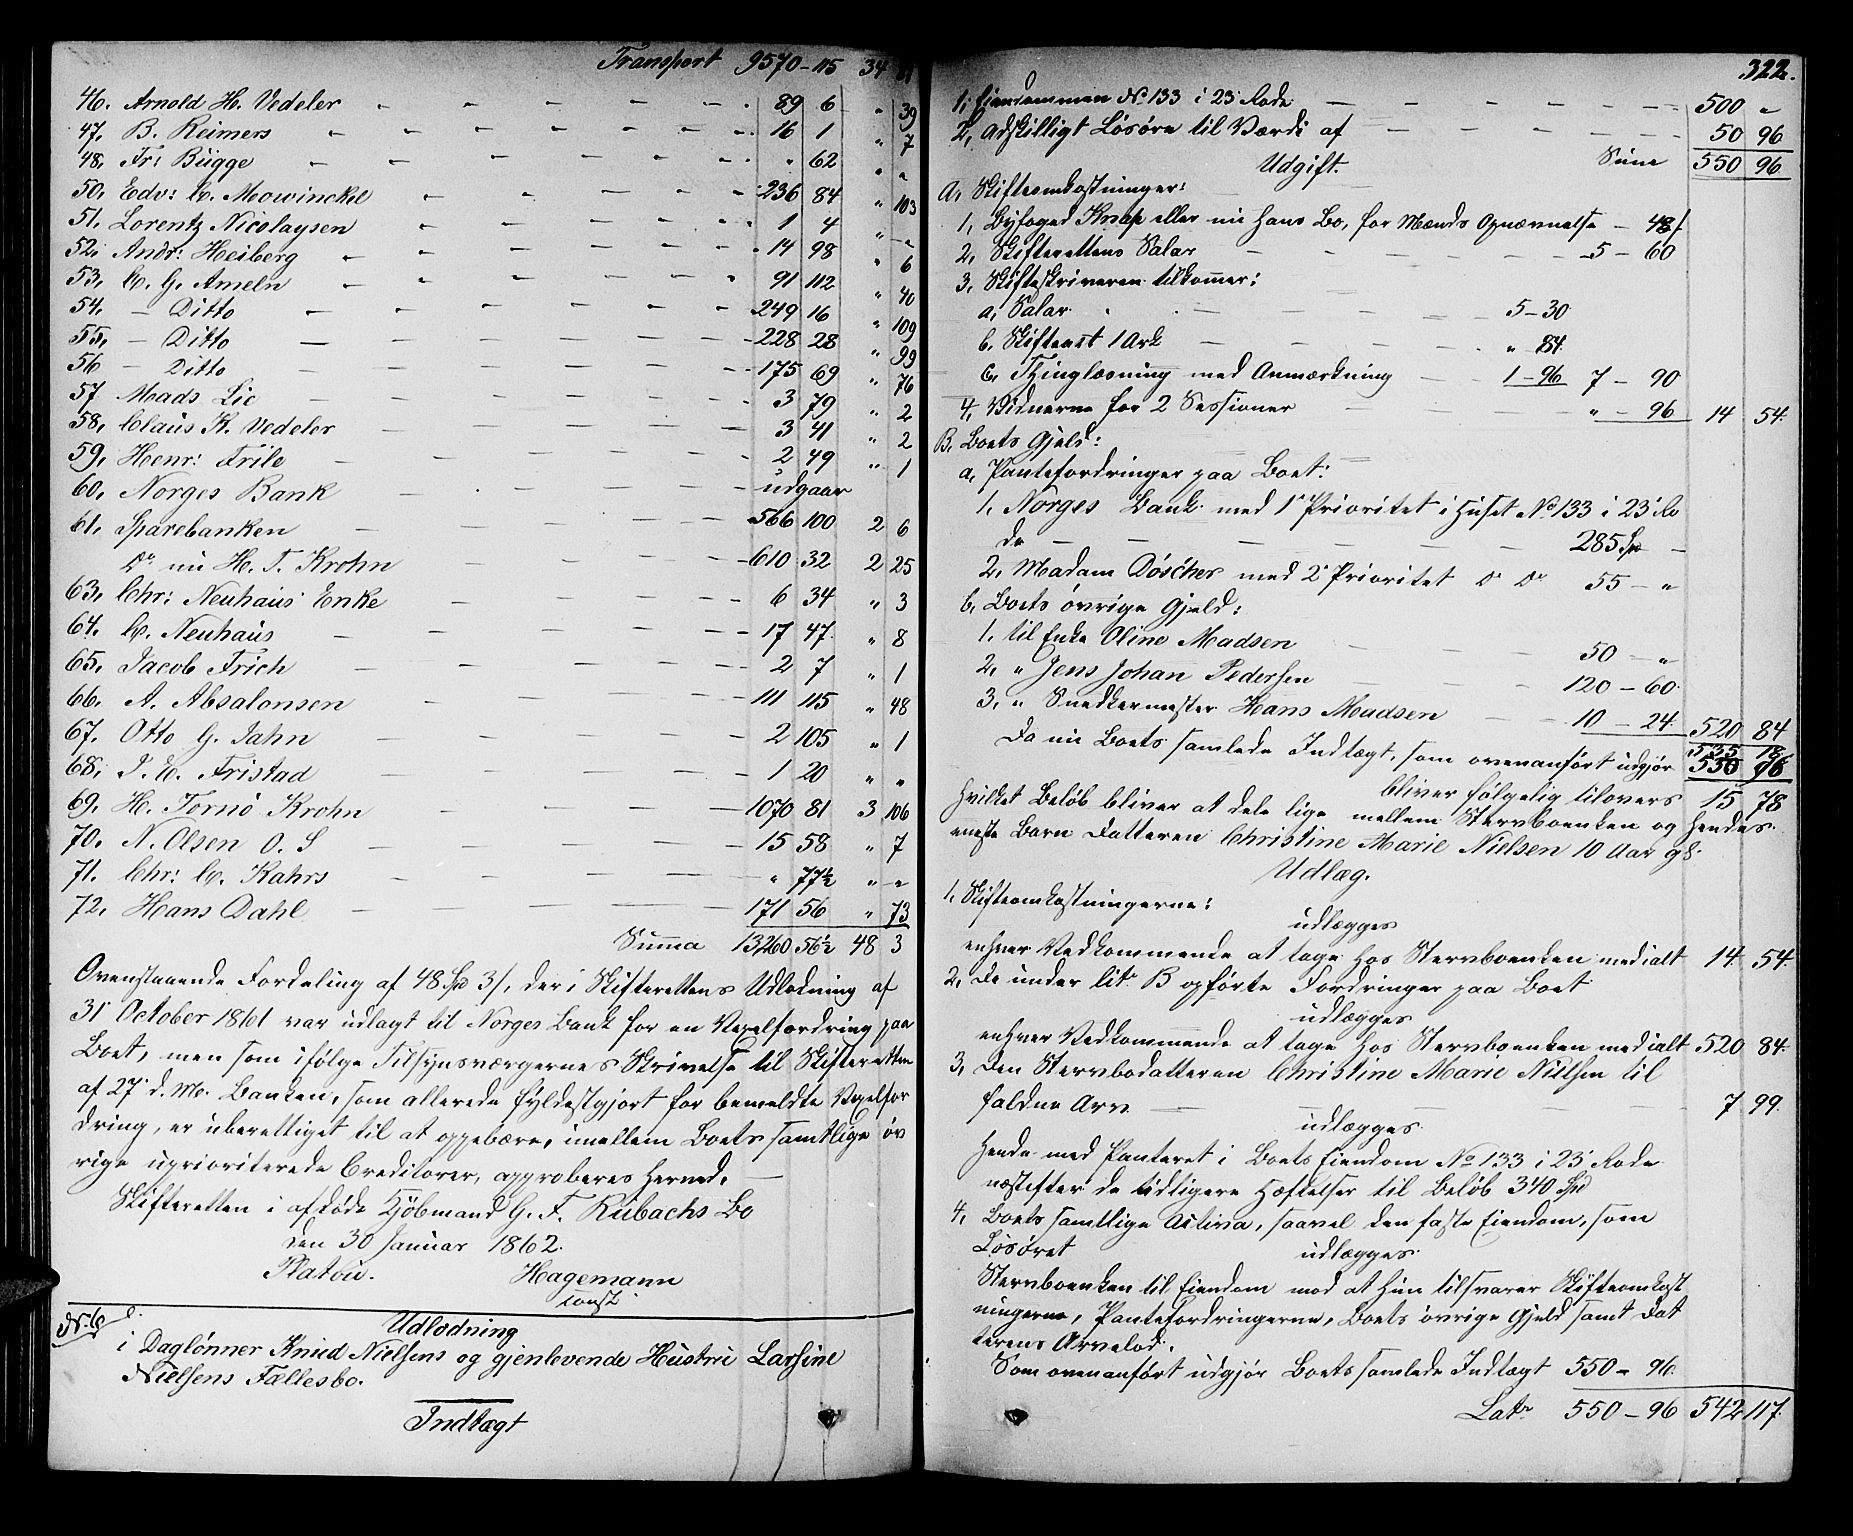 Transport 9570-115 34
46, Arnold H. Vedeler - - - 89 6 " 39
47, B. Reimers - - - 16 1 " 7
48, Fr: Bugge - - - " 62 " "
50, Edv: C. Mowinckel - - - 236 84 " 103
51, Lorentz Nicolaysen - - - 1 4 " "
52, Andr: Heiberg - - - 14 98 " 6
53, C. G. Ameln - - - 91 112 " 40
54, - Ditto - - - 249 16 " 109
55, - Ditto - - - 228 28 " 99
56 - Ditto - - - 175 69 " 76
57 Mads Lie - - - 3 79 " 2
58, Claus K. Vedeler - - - 3 41 " 2
59, Henr: Friele - - - 2 49 " 1
60, Norges Bank - - - udgaar
61, Sparebanken - - - 566 100 2 6
Do nu H. T. Krohn - - - 610 32 2 25
63, Chr: Neuhaus' Enke - - - 6 34 " 3
64, C. Neuhaus - - - 17 47 " 8
65, Jacob Frich - - - 2 7 " 1
66, A. Absalonsen - - - 111 115 " 48
67, Otto G. Jahn - - - 2 105 " 1
68, J. E. Fristad - - - 1 20 " "
69, H. Fornö Krohn - - - 1070 81 3 106
70, N. Olsen O. S - - - 15 58 " 7
71, Chr: C. Kahrs - - - " 77½ " "
72, Hans Dahl - - - 171 56 " 73
Summa 13,260 56½ 48 3
Ovenstaaende Fordeling af 48 Spd 3 /, der i Skifterettens Udlodning af
31 October 1861 var udlagt til Norges Bank for en Vexelfordring paa
Boet, men som ifølge Tilsynsværgernes Skrivelse til Skifteretten
af 27' d. M. Banken, som allerede fyldestgjort for bemeldte Vexelfor
dring, er uberettiget til at oppebære, imellem Boets samtlige øv
rige uprioriterede Creditorer, approberes herved.
Skifteretten i afdøde Kjöbmand G. F. Rubachs Bo
den 30 Januar 1862.
Platou. Hagemann
const
No 6 d. Udlodning
i Daglønner Knud Nielsens og gjenlevende Hustru Larsine
Nielsens Fællesbo.
Indtægt
322.
1, Eiendommen No 133 i 23 Rode - - - 500 "
2, Adskilligt Løsøre til Værdi af - - - 50 96
Udgift. Sum 550 96
A, Skifteomkostninger:
1, Byfoged Knap eller nu hans Bo, for Mænds Opnævnelse - 48 /
2, Skifterettens Salar - - - 5 - 60
3, Skifteskriveren tilkommer:
a, Salar - - - 5 - 30
b, Skifteact 1 Ark - - - " 84
c, Thinglæsning med Anmærkning - - 1 - 96 7 - 90
4, Vidnerne for 2 Sessioner - " - 96 14 54
B, Boets Gjeld:
a, Pantefordringer paa Boet:
1, Norges Bank med 1' Prioritet i Huset No 133 i 23' Ro
de - - - 285 Spd -
2, Madam Döscher med 2' Prioritet Do Do 55 - "
b, Boets øvrige Gjeld:
1, til Enke Oline Madsen - - - 50 - "
2, " Jens Johan Pedersen - - - 120 - 60
3, " Snedkermester Hans Madsen - - 10 - 24 520 84
535 18
Da nu Boets samlede Indtægt, som ovenanført udgjør 550 96
bliver følgelig tilovers 15 78
hvilket Beløb bliver at dele lige mellem Stervboenken og hendes
eneste Barn Datteren Christine Marie Nielsen 10 Aar gl.
Udlæg.
1, Skifteomkostningerne:
udlægges
enhver Vedkommende at tage hos Stervboenken med ialt 14 54
2, De under litr B opførte Fordringer paa Boet
udlægges
enhver Vedkommende at tage hos Stervboenken med ialt 520 84
3, Den Stervbodatteren Christine Marie Nielsen til
faldne Arv - - - 7 99
udlægges
hende med Panteret i Boets Eiendom No 133 i 23' Rode
næstefter de tidligere Hæftelser til Beløb 340 Spd
4, Boets samtlige Activa, saavel den faste Eiendom, som
Løsøret udlægges
Stervboenken til Eiendom mod at hun tilsvarer Skifteomkost
ningerne, Pantefordringerne, Boets øvrige Gjeld samt Dat
terens Arvelod.
Som ovenanført udgjør Boets samlede Indtægt 550 - 96
Latr 550 - 96 542 117